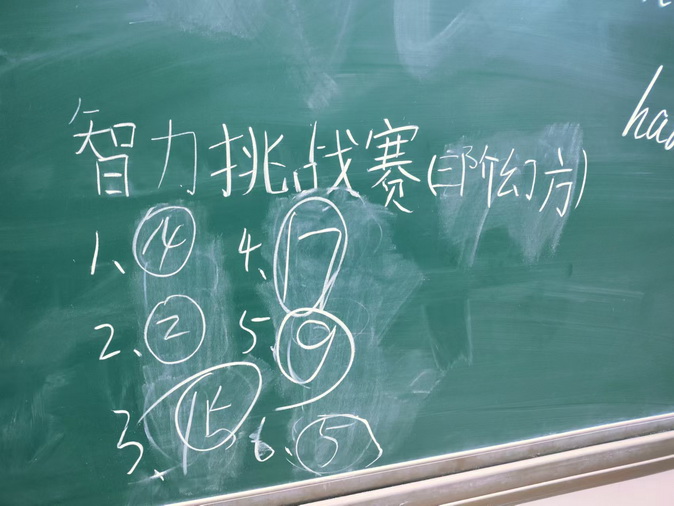 智力挑战赛(三阶幻方)
1、④ 4、17
2、② 5、⑨
3、15 6、⑤
ha